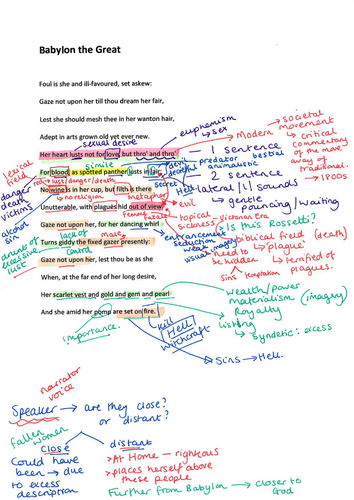 Babylon the Great
Foul is she and ill-favoured, set askew:
Gaze not upon her till thou dream her fair,
Lest she should mesh thee in her wanton hair,
Adept in arts grown old yet ever new.
Her heart lusts not for love, but thro' and thro'
For blood, as spotted panther lusts in lair;
No wine is in her cup, but filth is there
Unutterable, with plagues hid out of view.
Gaze not upon her, for her dancing whirl
Turns giddy the fixed gazer presently:
Gaze not upon her, lest thou be as she
When, at the far end of her long desire,
Her scarlet vest and gold and gem and pearl
And she amid her pomp are set on fire.
euphemism
→ sex
sexual desire
simile
Modern
societal
movement
→ critical
commentary
of the mod
way of
traditional.
→ 1800s
1 sentence
2 sentence
predator bestial
animalistic
devil
deceitful
secret
Hell
lateral [l] sounds
→ gentle
pouncing/waiting
lexical
field
danger
death
victims
red → lust/danger/death
→ no religion
metaphor
alcohol
sin
evil
Femme
fatale
topical → Victorian Era
sickness
→ Is this Rossetti?
entrancement
seduction
weak males
usual imagery
biblical field (death)
need to → 'plague'
be
hidden
→ terrified of
plagues.
sins
temptation
lack of
control
male
excessive
lust
wealth/power
materialism (imagery)
Royalty
Listing
→ syndetic: excess
importance.
kill
Hell
witchcraft
Sins → Hell.
narrator
voice
Speaker → are they close?
or distant?
fallen
women
close
Could have
been → due
to excess
description
distant
> At Home → righteous
> places herself above
these people
Further from Babylon → closer to
God